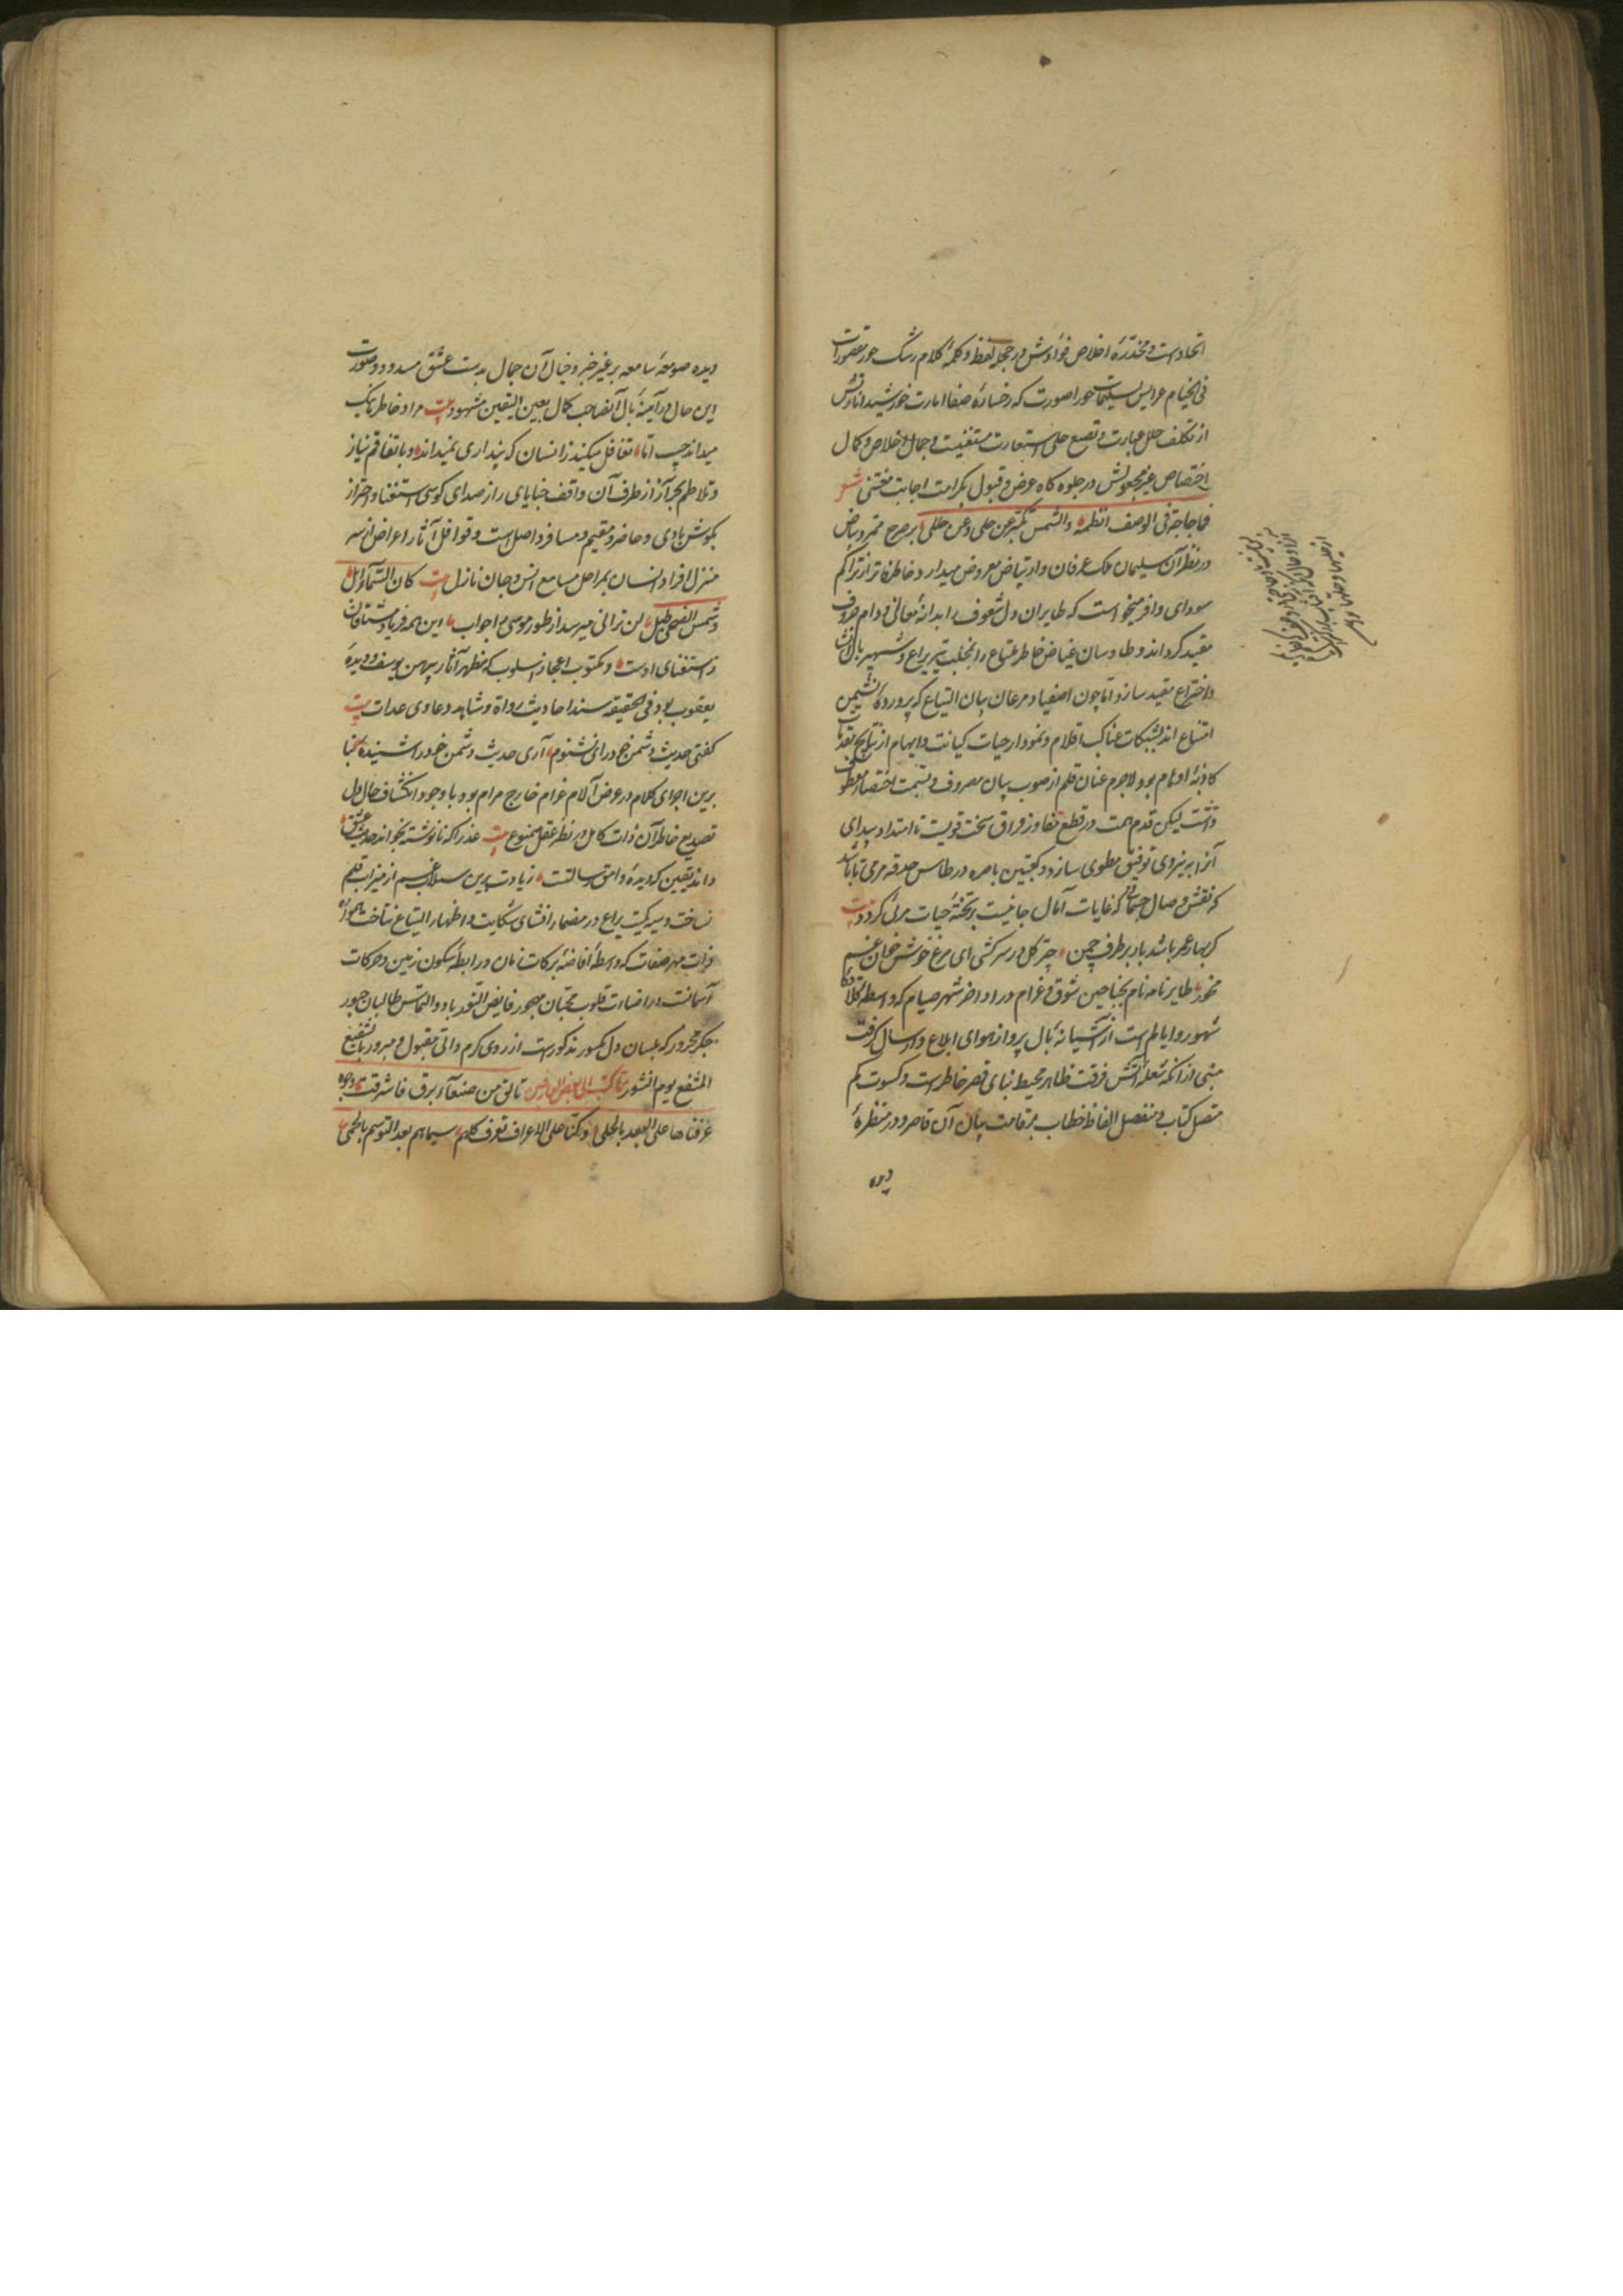 اتحادست و مخدره اخلاص فؤادش در حجله لفظ و کله کلام رشک حور مقصورات
فی الخیام عرایس سلیمات حورا صورت که رخساره صفا امارت خورشید اناردش
از تکلف حلل عبارت و تصنع حلی استعارت مستغنیست و جمال اخلاص و کمال
اختصاص غیر مجعولش در جلوه کاه عرض و قبول بکرامت اجابت مغتنی شعر
فما حاجتی فی الوصف انظمه والشمس تکبر عن حلی و عن حلل بر صرح ممرد بیاض
در نظر آن سلیمان ملک عرفان و ارتیاض معروض میدارد و خاطر فاتر از تراکم
سودای وافر میخواست که طایران دل شعوف را بدانه معانی و دام حروف
مقید کرداند و طاوسان غیاض خاطر ملتاع را بمخلب تیر یراع و شهپر بال
و اختراع مقید سازد و اما چون اصفیاد مرغان بیان التیاع که پرورده نشیمن
امتناع اند بشبکات عناکب اقلام و نمودار حیات کیانت و ایهام از نتایج
کاذبه اوهام بود لاجرم عنان قلم از صوب بیان مصروف و بسمت اختصار معطوف
داشت لیکن قدم همت در قطع مفاوز فراق سخت قویست تا امتداد بیدای
آنرا بنیروی توفیق مطوی سازد و کعبتین باصره در طاس حدقه مرمی تا باشد
که نقش وصال جسمانی که غایات آمال جانیست بر تخته حیات مرئی کردد بیت
کر بهار عمر باشد باز بر طرف چمن چتر کل در سر کشی ای مرغ خوشخوان غم
مخور طایر نامه نام بجناحین شوق و غرام در اواخر شهر صیام که واسطه قلاده
شهور و ایامست از آشیانه بال پرواز هوای ابلاغ و ارسال کرفت
مبنی از انکه شعله آتش فرقت ظاهر محیط بنای قصر خاطرست و کسوت کم
متصل کتاب و منفصل الفاظ خطاب بر قامت بیان آن قاصر و در منظره
دیده
دیده صومعه سامعه بر غیر خبر و خیال آن جمال بدست عشق مسدود و صورت
این حال در آینه بال آنصاحب کمال بعین الیقین مشهود بیت مراد خاطر ما یک
میداند چیست اما تغافل میکند زانسان که پنداری نمیداند و باتفاقم نیاز
و تلاطم بحر آز از طرف آن واقف خبایای راز صدای کوس استغنا و احتراز
بکوش بادی و حاضر و مقیم و مسافر واصل است و قوافل آثار اعراض از سر
منزل افراد انسان بمراحل مسامع انس و جان نازل بیت کان السماء ایل
و شمس الضحی طبل لن ترانی میرسد از طور موسی را جواب این همه فریاد مشتاقان
ز استغنای اوست و مکتوب اعجاز اسلوب که مظهر آثار پیرهن یوسف و دیده
یعقوب بود فی الحقیقه سند احادیث رواة و شاهد دعاوی عدات بیت
کفتی حدیث دشمن خود را نشنوم آری حدیث دشمن خود را شنیده بنا
برین اجرای کلام در عرض آلام غرام خارج مرام بود با وجود انکشاف حال دل
تصدیع خاطر آن ذات کامل در نظر عقل ممنوع بیت عذرا که نانوشته بخواند حدیث عشق
داند یقین که دیده وامق رسالتست زیادت برین سیلاب غم از میزاب قلم
نساخت و سیه کیت یراع در مضمار افشای شکایت و اظهار التیاع نتاخت همواره
ذات مهر صفات که واسطه افاضه برکات زمان و رابطه سکون زمین و حرکات
آسمانست در اضاءت قلوب محبان مهجور فایض النور باد و التماس طالبان
جکر محرور که بلسان دل مکسور مذکورست از روی کرم ذاتی مقبول و مبرور بالشفیع
المشفع یوم النشور مما کتب الی بعض العارفین تالق من صنعاء برق فاشرقت وجوه
عرفناها علی البعد بالحلی و کنا علی الاعراف نعرف کلهم بسیماهم بعد التوسم بالحمی